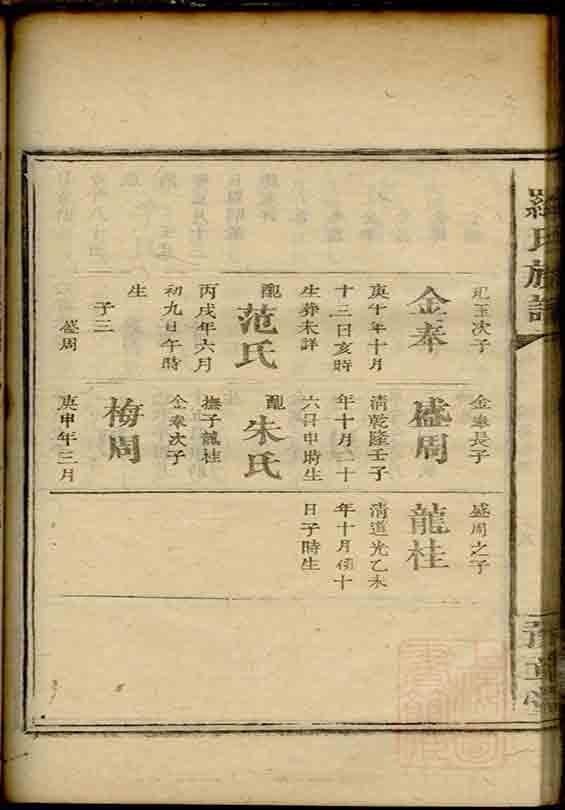 羅氏族譜
玘玉次子
金奉
庚午年十月
十三日亥時
生葬未詳
配
范氏
丙戌年六月
初九日午時
生
子三
盛周
金奉長子
盛周
清乾隆壬子
年十月二十
六日申時生
配
朱氏
撫子龍桂
金奉次子
梅周
庚申年三月
盛周之子
龍桂
清道光乙未
年十月初十
日子時生